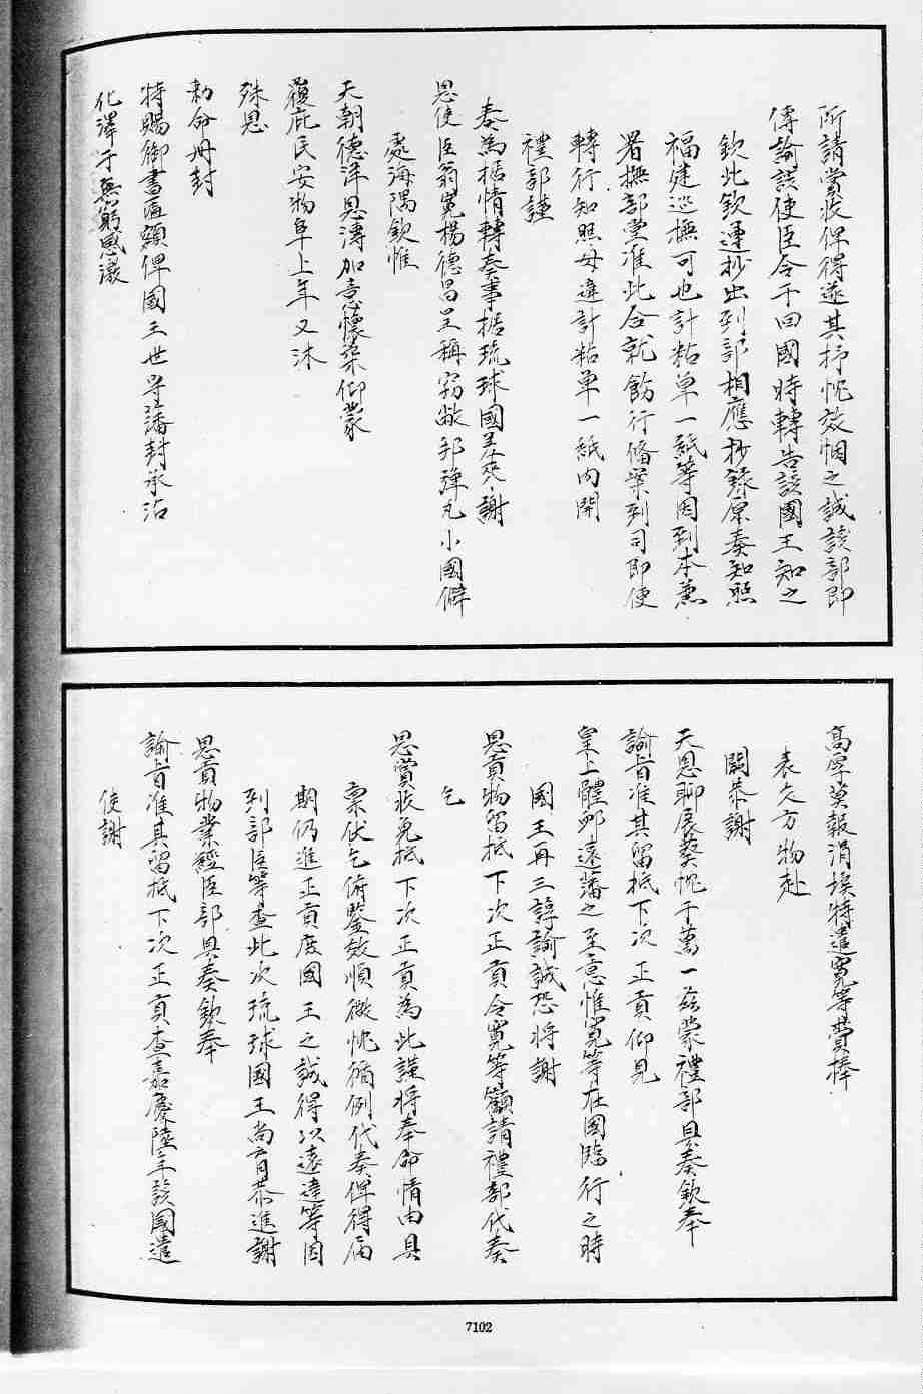 所請賞收俾得遂其抒忱效悃之誠該部即
傳諭該使臣令于回國時轉告該國王知之
欽此欽遵抄出到部相應抄錄原奏知照
福建巡撫可也計粘單一紙等因到本兼
署撫部堂准此合就飭行俻案到司即便
轉行知照毋違計粘單一紙內開
禮部謹
奏為據情轉奏事據琉球國差來謝
恩使臣翁寬楊德昌呈稱竊敝邦彈丸小國僻
處海隅欽惟
天朝德洋恩溥加意懷柔仰蒙
覆庇民安物阜上年又沐
殊恩
勅命冊封
特賜御書匾額俾國王世守藩封承沾
化澤于無窮感激
高厚莫報涓埃特遣寬等賫捧
表文方物赴
闕恭謝
天恩聊展葵忱于萬一茲蒙禮部具奏欽奉
諭旨准其留抵下次正貢仰見
皇上體卹遠藩之至意惟寬等在國臨行之時
國王再三諄諭誠恐將謝
恩貢物留抵下次正貢令寬等籲請禮部代奏
乞
恩賞收免抵下次正貢為此謹將奉命情由具
稟伏乞俯鑒效順微忱循例代奏俾得屆
期仍進正貢度國王之誠得以遠達等因
到部臣等查此次琉球國王尚育恭進謝
恩貢物業經臣部具奏欽奉
諭旨准其留抵下次正貢查嘉慶陸年該國遣
使謝
7102